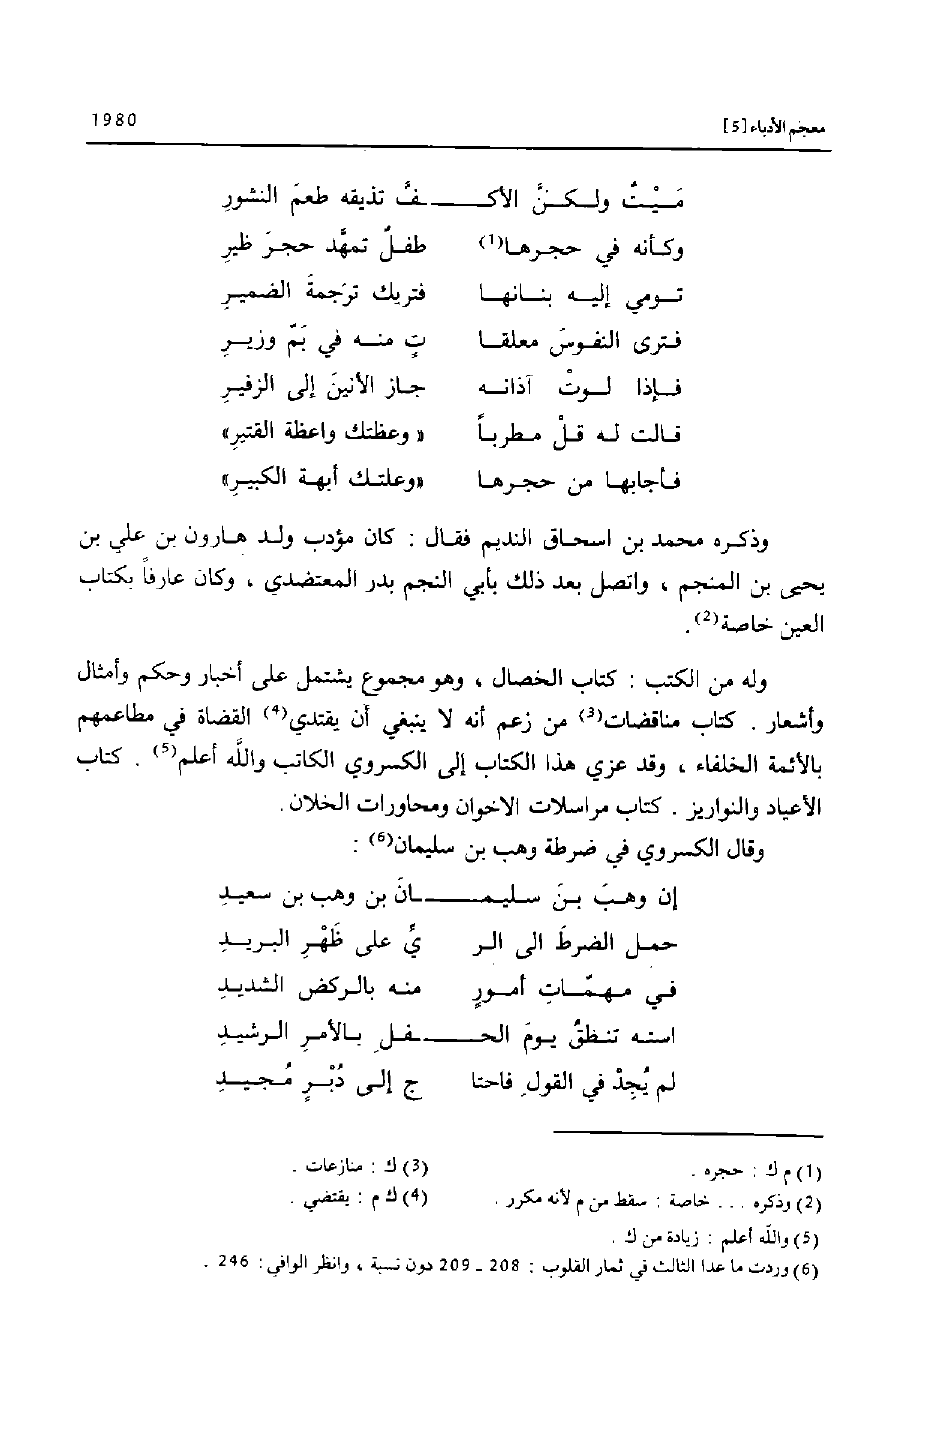 معجم الأدباء [5] 1980
مَيْتٌ ولكنَّ الأكفَّ تذيقه طعمَ النشورِ
وكأنه في حجرها(1) طفلٌ تمهَّد حجرَ ظيرِ
تومي إليه بنانها فتريك ترجمةَ الضميرِ
فترى النفوسَ معلقا تٍ منه في بَمّ وزيرِ
فإذا لوتْ آذانه جاز الأنينَ إلى الزفيرِ
قالت له قلْ مطرباً « وعظتك واعظة القتير»
فأجابها من حجرها «وعلتك أبهة الكبير»
وذكره محمد بن اسحاق النديم فقال : كان مؤدب ولد هارون بن علي بن
يحيى بن المنجم ، واتصل بعد ذلك بأبي النجم بدر المعتضدي ، وكان عارفاً بكتاب
العين خاصة(2) .
وله من الكتب : كتاب الخصال ، وهو مجموع يشتمل على أخبار وحكم وأمثال
وأشعار . كتاب مناقضات(3) من زعم أنه لا ينبغي أن يقتدي(4) القضاة في مطاعمهم
بالأئمة الخلفاء ، وقد عزي هذا الكتاب إلى الكسروي الكاتب واللّه أعلم(5) . كتاب
الأعياد والنواريز . كتاب مراسلات الاخوان ومحاورات الخلان .
وقال الكسروي في ضرطة وهب بن سليمان(6) :
إن وهبَ بنَ سليمانَ بن وهب بن سعيدِ
حمل الضرطَ الى الر يِّ على ظَهْرِ البريدِ
في مهمّاتِ أمورٍ منه بالركض الشديدِ
استه تنطقُ يومَ الحفلِ بالأمرِ الرشيدِ
لم يُجِدْ في القولِ فاحتا ج إلى دُبْرٍ مُجيدِ
(1) م ك : حجره .
(3) ك : منازعات .
(2) وذكره ... خاصة : سقط من م لأنه مكرر .
(4) ك م : يقتضي .
(5) واللّه أعلم : زيادة من ك .
(6) وردت ما عدا الثالث في ثمار القلوب : 208 ـ 209 دون نسبة ، وانظر الوافي : 246 .